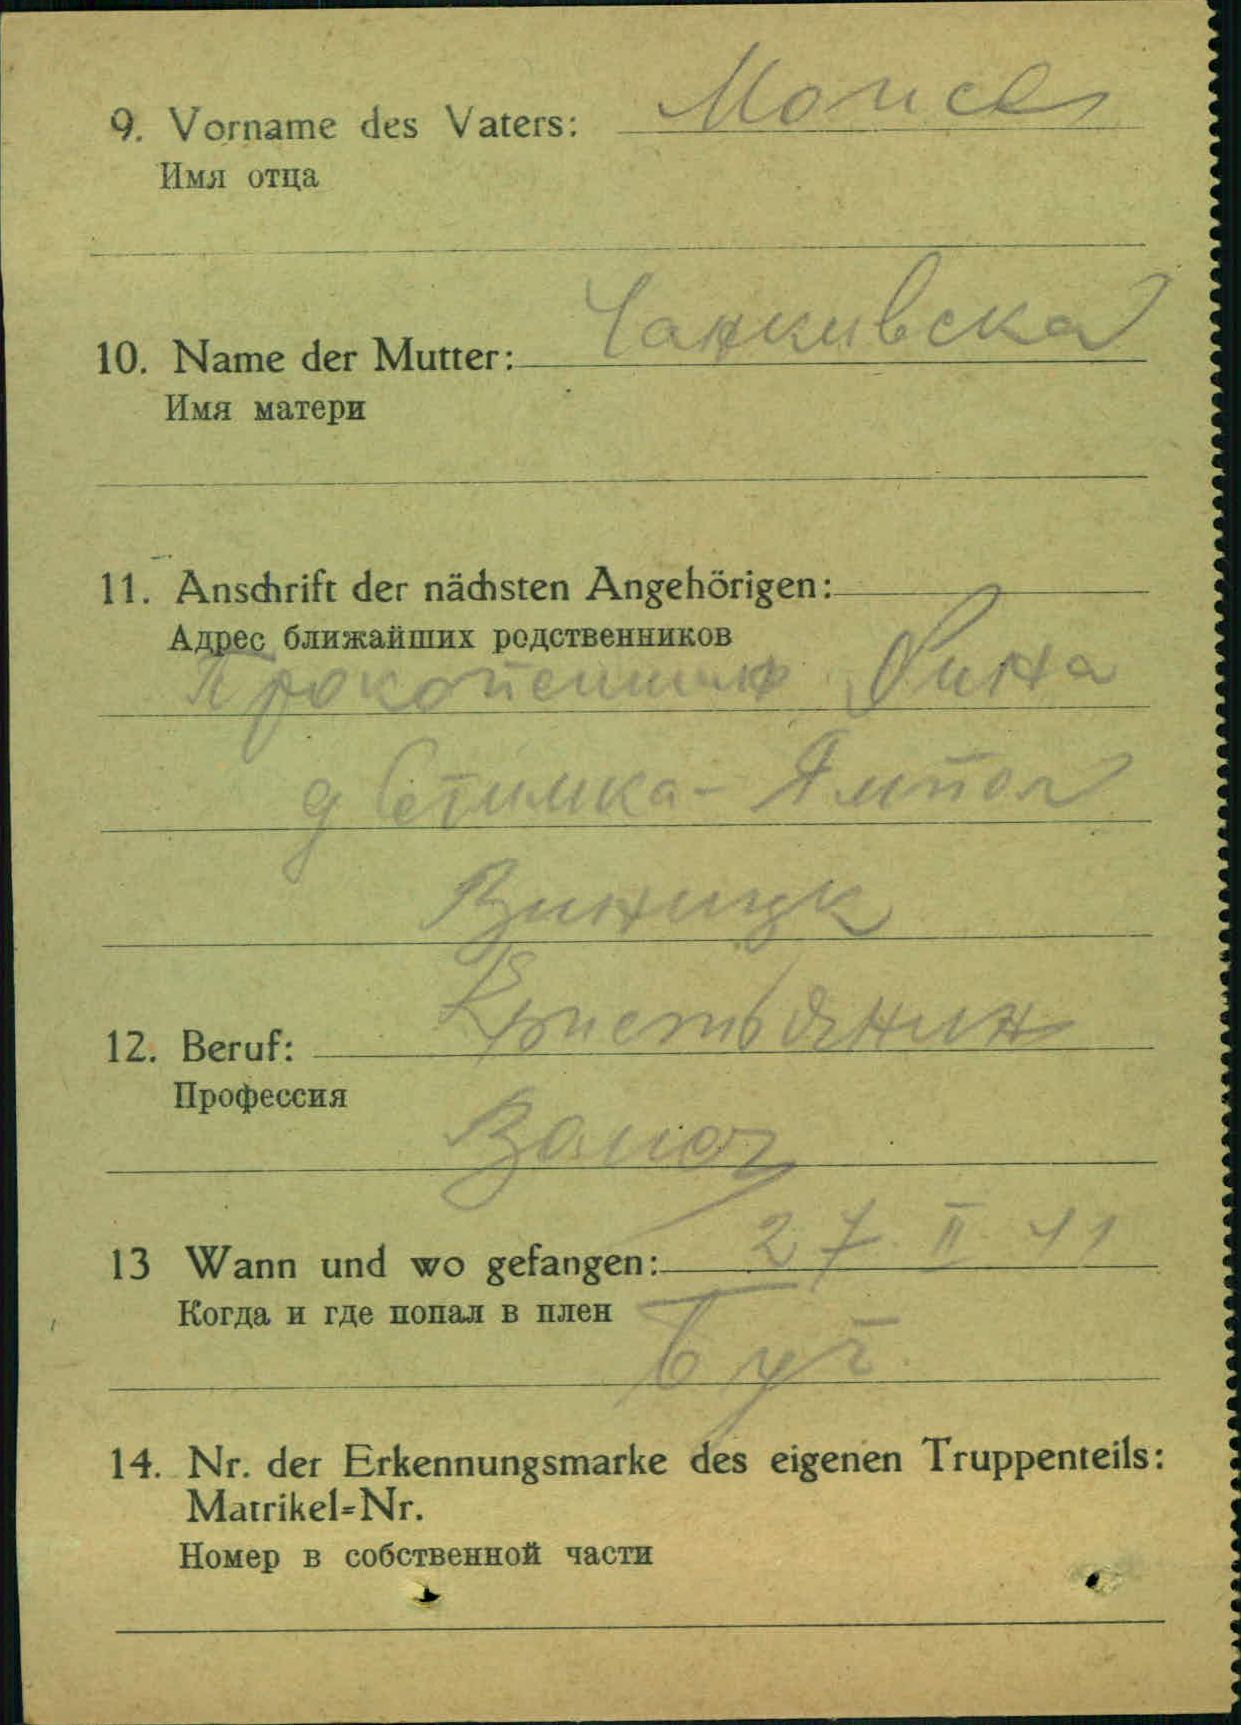 9. Vorname des Vaters: Моисей
Имя отца
10. Name der Mutter: Чанкивска
Имя матери
11. Anschrift der nächsten Angehörigen:
Адрес ближайших родственников
Нина
Ямпол
Виницк
12. Beruf: Кристьянин
Профессия
13 Wann und wo gefangen: 27 II 41
Когда и где попал в плен
14. Nr. der Erkennungsmarke des eigenen Truppenteils:
Matrikel=Nr.
Номер в собственной части